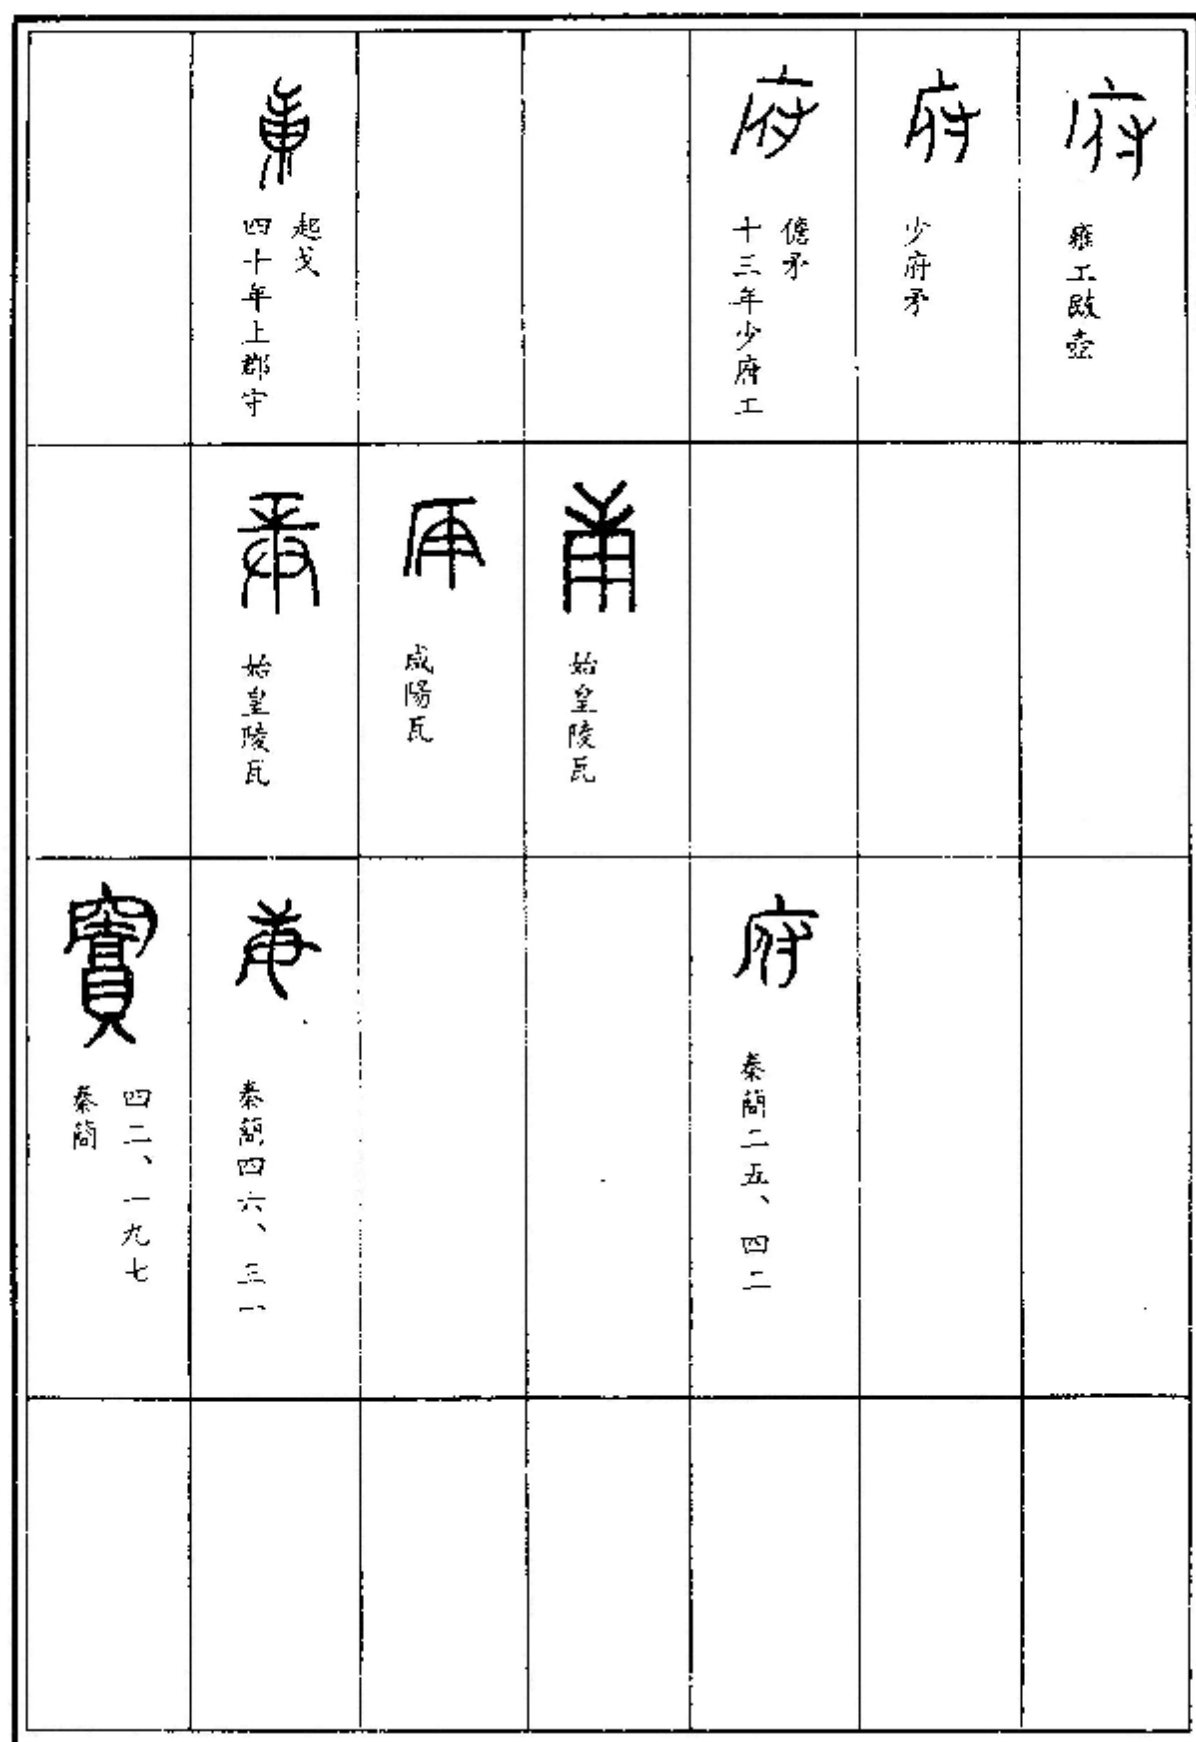 府
雍工敃壺
府
少府矛
府
十三年少府工
儋矛
四十年上郡守
起戈
始皇陵瓦
咸陽瓦
始皇陵瓦
府
秦簡二五、四二
秦簡四六、三一
竇
秦簡
四二、一九七